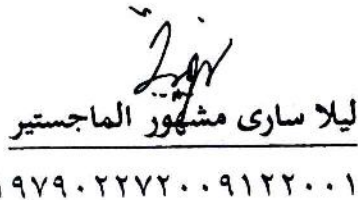 ليلا سارى مشهور الماجستير
١٩٧٩٠٢٢٧٢٠٠٩١٢٢٠٠١